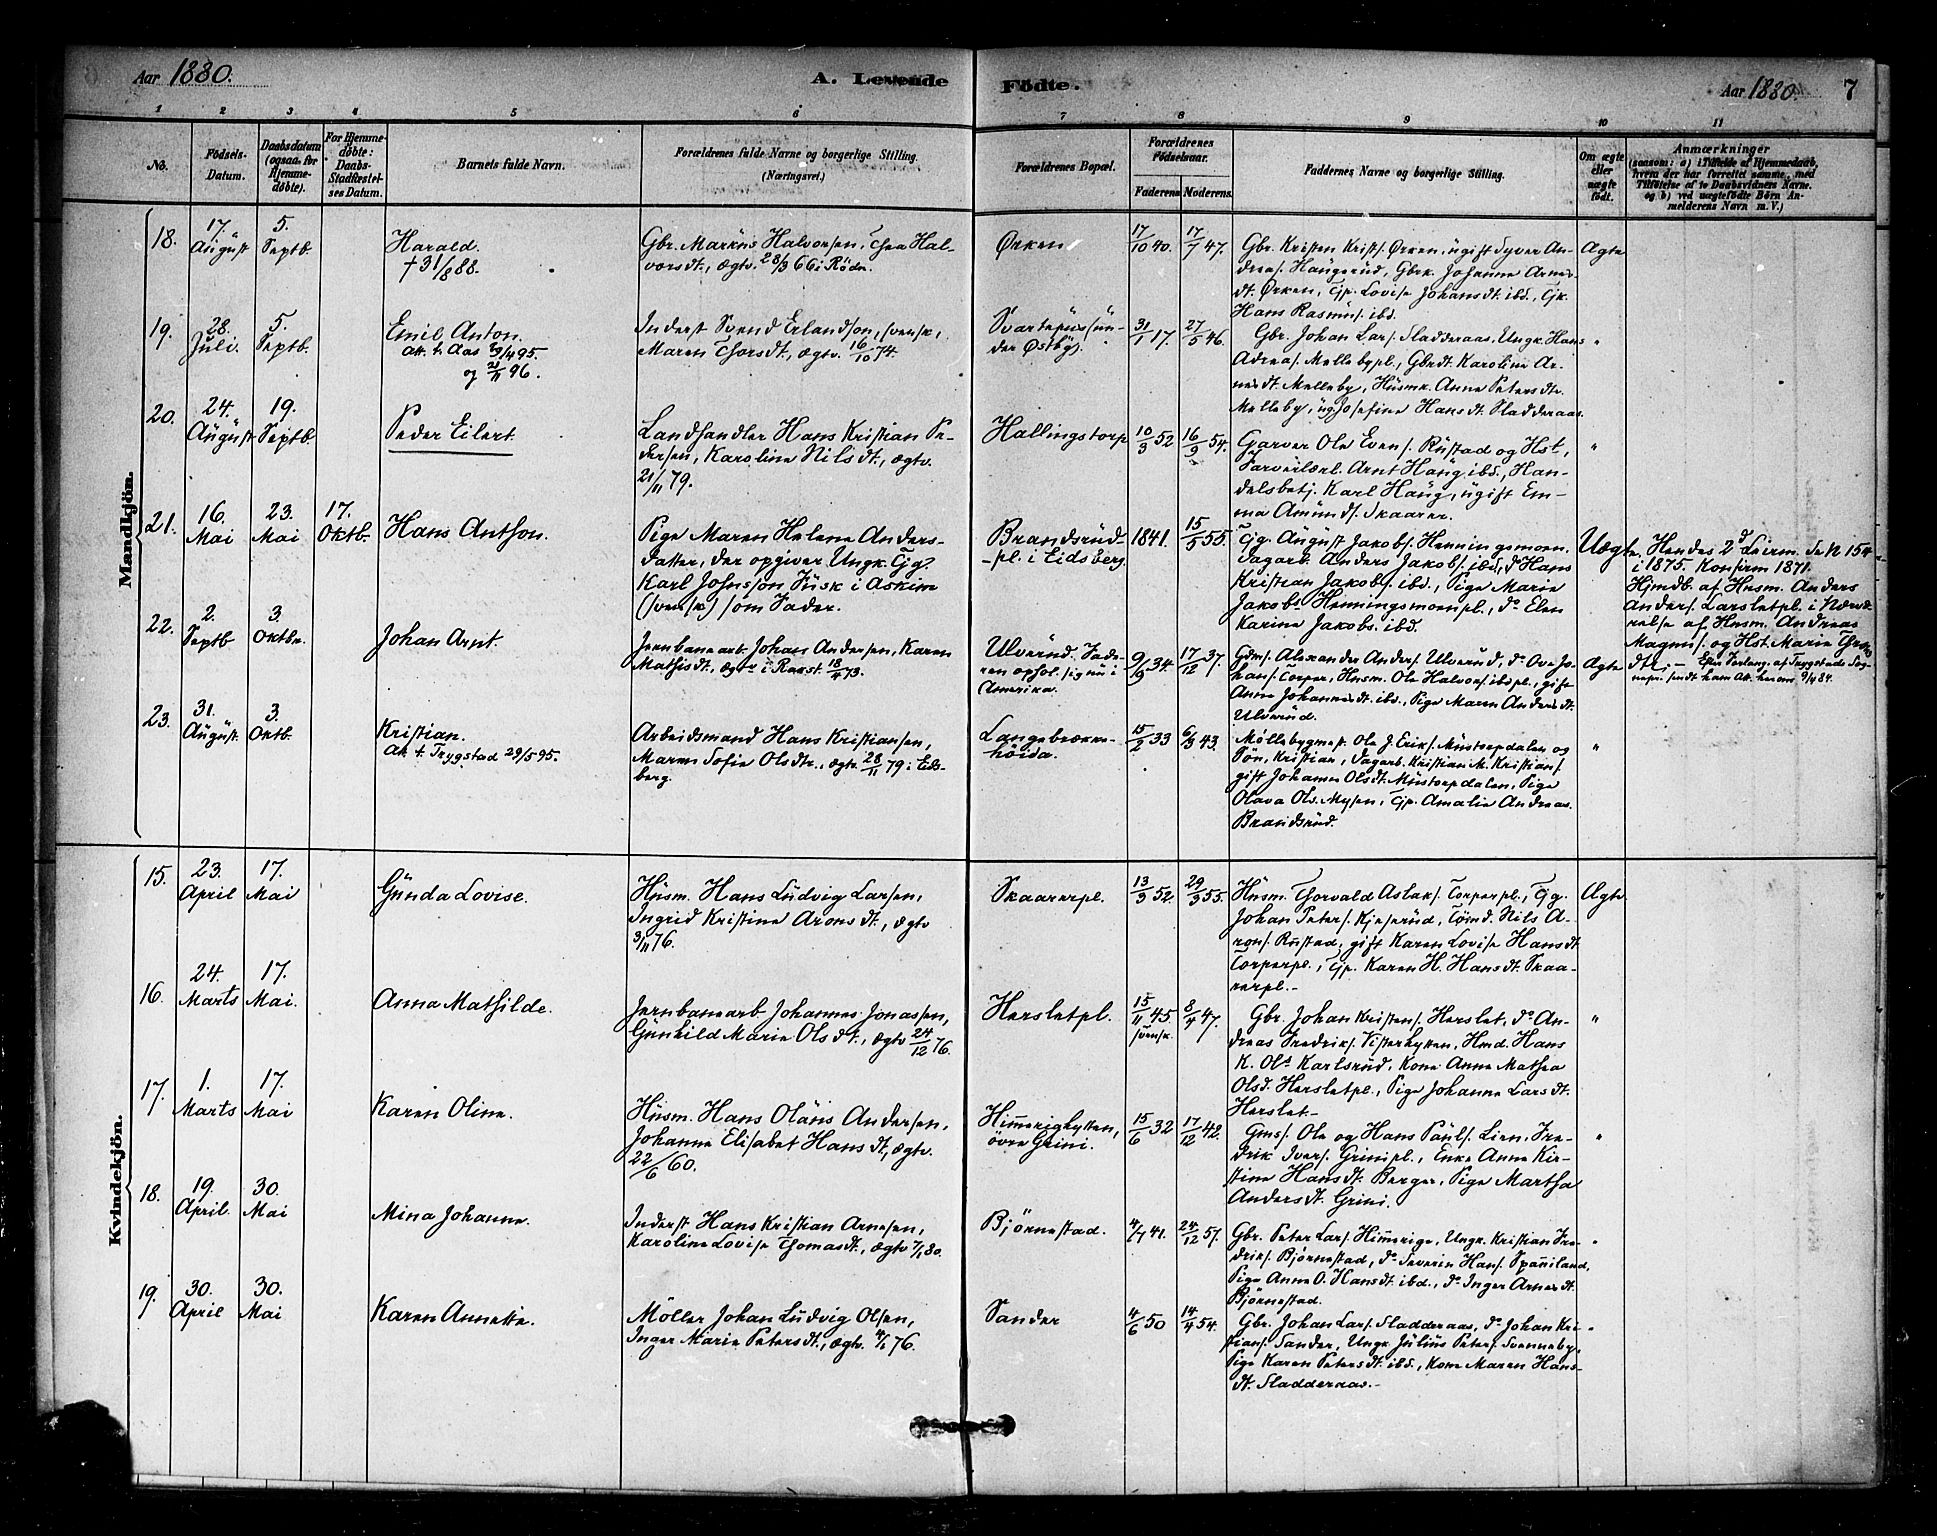 Aar 1880.
A. Levende
Födte.
Aar 1880. 7
1 2 3 4 5 6 7 8 9 10 11
No.
Födsels-
Datum.
Daabsdatum
(ogsaa for
Hjemme-
döbte).
For Hjemme-
döbte:
Daabs-
Stadfæstel-
ses Datum.
Barnets fulde Navn.
Forældrenes fulde Navne og borgerlige Stilling.
(Næringsvei.)
Forældrenes Bopæl.
Forældrenes
Födselsaar.
Faderens Moderens.
Faddernes Navne og borgerlige Stilling.
Om ægte
eller
uægte
födt.
Anmærkninger
(saasom: a) i Tilfælde af Hjemmedaab,
hvem der har forrettet samme, med
Tilföielse af to Daabsvidners Navne.
og b) ved uægtefödte Börn An-
melderens Navn m. V.)
Mandkjön.
18.
17.
August
5.
Septb.
Harald.
† 31/8 88.
Gbr. Markus Halvorsen, Thea Hal-
vorsdt., ægtv. 28/3 66 i Rödn.
Ørken
17/10 40.
17/7 47.
Gbr. Kristen Krists. Ørken, ugift Syver An-
dreas. Haugerud, Gbrk. Johanne Arnes
dt. Ørken, Tjp. Lovise Johansdt. ibd., Tjk.
Hans Rasmus. ibd.
Ægte
19.
28.
Juli.
5.
Septb.
Emil Anton.
Att. t. Aas 4/495.
og 21/11 96.
Inderst Svend Erlandson, svensk,
Maren Thorsdt., ægtv. 16/10 74.
Svartepus un-
der Østby.
31/1 17.
27/5 46.
Gbr. Johan Lars. Sladderaas, Ungk. Hans
Adreas. Mellebypl., Gbrdt. Karoline Ar-
nesdt. Melleby, Husmk. Anne Petersdtr.
Melleby, ug. Josefine Hansdt. Sladderaas.
"
20.
24.
August
19.
Septb
Peder Eilert
Landhandler Hans Kristian Pe-
dersen, Karoline Nilsdt., ægtv.
21/11 79.
Hallingstorp
10/3 52
16/9 54.
Garver Ole Evens. Rustad og Hst,
Farverlærl. Arnt Haug ibd., Han-
delsbetj. Karl Haug, ugift Em-
ma Amunds. Skaarer.
"
21.
16.
Mai
23.
Mai
17.
Oktb.
Hans Anthon.
Pige Maren Helene Anders-
datter, der opgiver Ungk. Tjg.
Karl Johnsson Fusk i Askim
(svensk) som Fader.
Brandsrud-
pl. i Eidsberg
1841.
15/5 55.
Tjg. August Jakobs. Henningsmoen.
Dagarb. Anders Jakobs. ibd., do Hans
Kristian Jakobs. ibd., Pige Marie
Jakobs. Henningsmoenpl., do Elen
Karine Jakobs. ibd.
Uægte
Hendes 2d Leierm. Se N 154
i 1875. Konfirm 1871.
Hjmdb. af Husm. Anders
Anders. Larsletpl. i Nærvæ-
relse af Husm. Andreas
Magnus. og Hst. Marie
dtr. – Efter Forlang. af Trygstads Sog-
nepr. sendt ham Att. herom 9/4 84.
22.
2.
Septb
3.
Oktbr.
Johan Arnt.
Jernbanearb. Johan Andersen, Karen
Mathisdt., ægtv i Rakst. 18/4 73.
Ulverud. Fade-
ren ophol. sig nu i
Amerika.
9/9 34.
17/12 37.
Gdms. Alexander Anders. Ulverud, do Ove Jo-
hans. Torper, Husm. Ole Halvors. ibdpl., gift
Anne Johannesdt. ibd., Pige Maren Andersdt.
Ulverud.
Ægte
23.
31.
August.
3.
Oktb.
Kristian.
Att. t. Trygstad 29/5 95.
Arbeidsmand Hans Kristiansen,
Maren Sofie Olsdtr., ægtv 28/11 79 i Eids-
berg.
Langebrække-
höida.
15/2 33
6/3 43.
Møllebygmest. Ole J. Eriks. Mustorpdalen og
Søn, Kristian, Dagarb. Kristian M. Kristians.
gift Johanne Olsdt. Mustorpdalen, Pige
Olava Ols. Mysen, Tjp. Amalie Andreas.
Brandsrud.
"
Kvindekjön.
15.
23.
April
17.
Mai
Gunda Lovise.
Husm. Hans Ludvig Larsen,
Ingrid Kristine Aronsdt., ægtv
3/11 76.
Skaarerpl.
13/3 52.
29/3 55.
Husm. Thorvald Aslaks. Torperpl., Tjg.
Johan Peters. Kjeserud, Tømd. Nils A-
rons. Rustad, gift Karen Lovise Hansdt.
Torperpl., Tjp. Karen H. Hansdt. Skaa-
rerpl. –
Ægte
16.
24.
Marts
17.
Mai.
Anna Mathilde.
Jernbanearb. Johannes Jonassen,
Gunhild Marie Olsdt., ægtv 24/12 76.
Hersletpl.
15/11 45
svensk.
8/4 47.
Gbr. Johan Kristens. Herslet, do An-
dreas Fredriks. Visterhytten, Hmd. Hans
K. Ols. Karlsrud, Kone Anne Mathea
Olsd. Hersletpl., Pige Johanne Larsdt.
Herslet. –
"
17.
1.
Marts
17.
Mai
Karen Oline.
Husm. Hans Olaus Andersen,
Johanne Elisabet Hansdt., ægtv.
22/6 60.
Himmerighytten,
övre Grini.
15/6 32
17/12 42.
Gms. Ole og Hans Pauls. Lien, Fre-
drik Ivers. Grinipl., Enke Anne Kir-
stine Hansdt. Berger, Pige Martha
Andersdt. Grini.
"
18.
19.
April.
30.
Mai
Mina Johanne.
Inderst Hans Kristian Arnesen,
Karoline Lovise Thomasdt., ægtv 7/1 80.
Bjørnestad.
4/7 41.
24/12 57.
Gbr. Peter Lars. Himmerige, Ungk. Kristian Fre-
driks. Bjørnestad, do Severin Hans. Spauiland,
Pige Anne O. Hansdt. ibd., do Inger Arnesdt.
Bjørnestad.
"
19.
30.
April
30.
Mai
Karen Annette.
Möller Johan Ludvig Olsen,
Inger Marie Petersdt., ægtv. 4/1 76.
Sander
4/6 50
14/4 54.
Gbr. Johan Lars. Sladderaas, do Johan Kri-
stians. Sander, Ungk Julius Peters. Svenneby,
Pige Karen Petersdt. ibd., Kone Maren Hans-
dt. Sladderaas. –
"